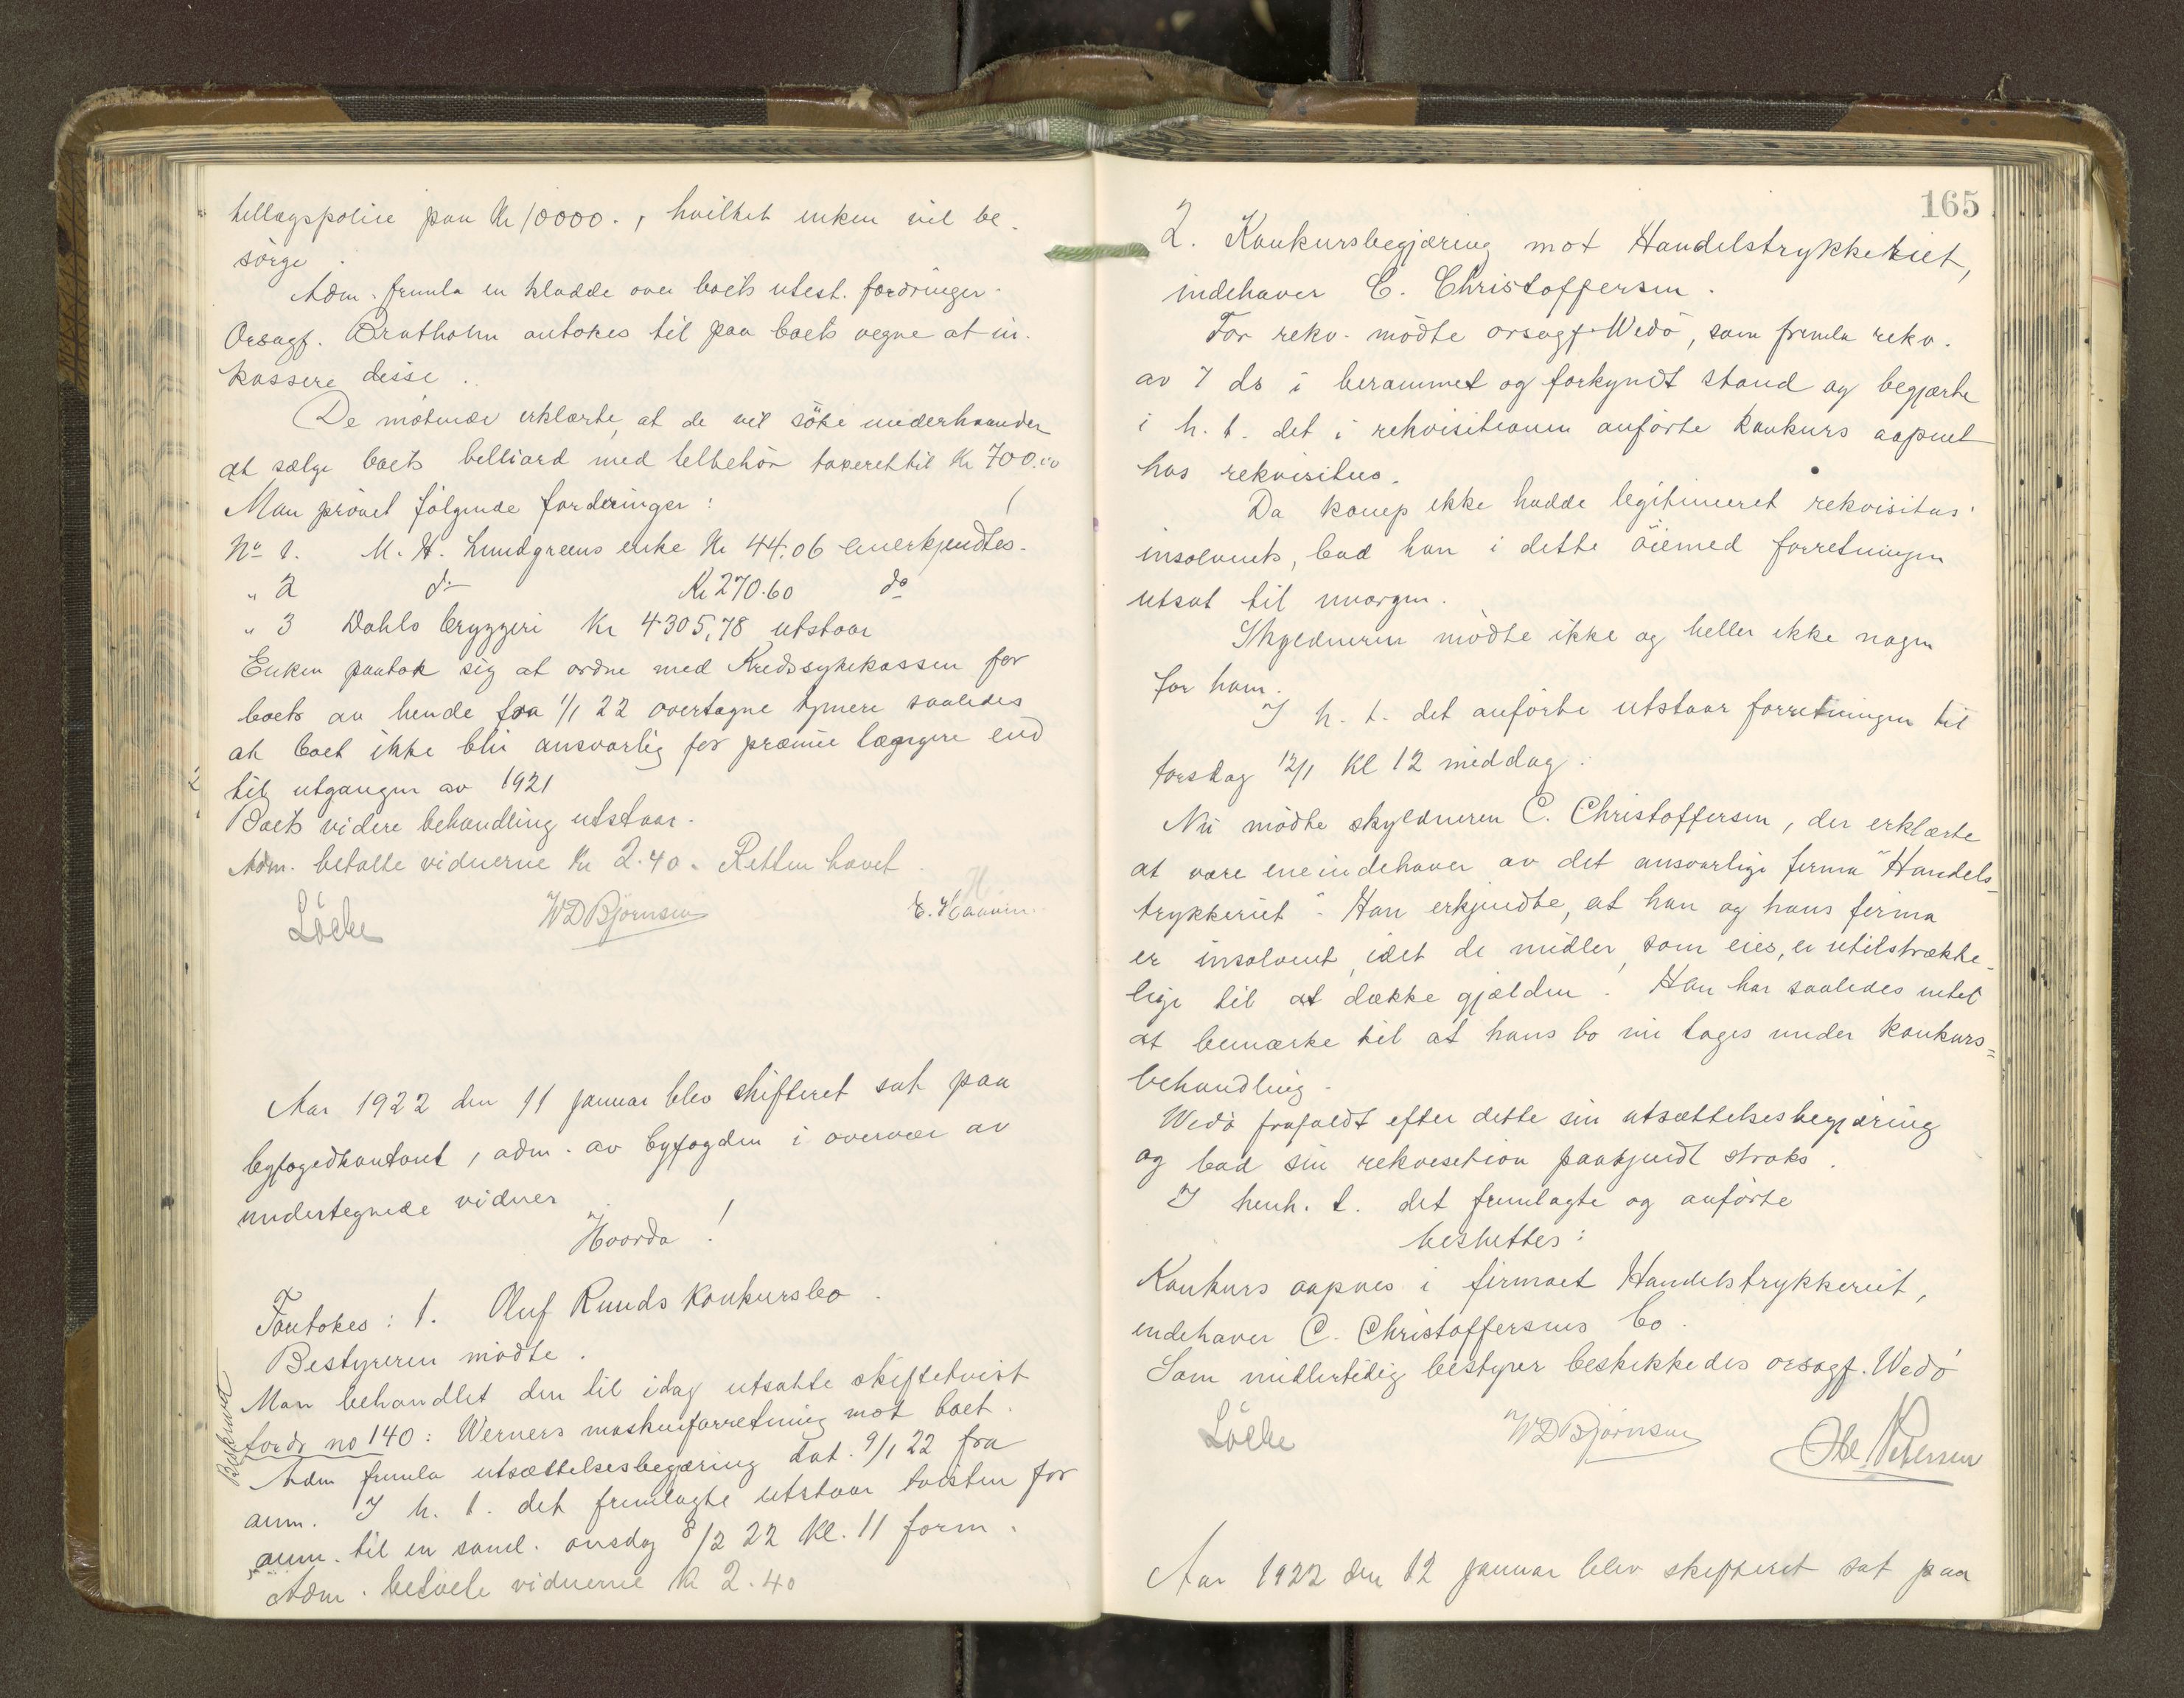 tillægspolice paa Kr 10000., hvilket enken vil be-
sørge.
Adm. fremla en kladde over boets utest. fordringer.
Orsagf. Bratholm antokes til paa boets vegne at in-
kassere disse.
De møtende erklærte, at de vil søke underhaanden
at sælge boets billiard med tilbehør taxeret til Kr 700.00
Man prøvet følgende fordringer:
No 1. M. H. Lundgreens enke Kr 44.06 anerkjendtes.
" 2 do Kr 270.60 do
" 3 Dahls bryggeri Kr 4305,78 utstaar
Enken paatok sig at ordne med Kredssykekassen for
boets av hende fra 1/1 22 overtagne tjenere saaledes
at boet ikke blir ansvarlig for præmie længere end
til utgangen av 1921
Boets videre behandling utstaar.
Adm. betalte vidnerne Kr 2.40. Retten hævet
WDBjørnsen
Aar 1922 den 11 januar blev skifteret sat paa
byfogedkontoret, adm. av byfogden i overvær av
undertegnede vidner
Hvorda!
Foretokes: 1. Oluf Ruuds konkursbo.
Bestyreren mødte.
Man behandlet den til idag utsatte skiftetvist
fordr no 140: Werners maskinforretning mot boet.
Adm fremla utsættelsesbegjæring dat. 9/1 22 fra
anm. I h. t. det fremlagte utstaar tvisten for
anm. til en saml. onsdag 8/2 22 Kl. 11 form.
Adm. betalte vidnerne Kr 2.40
165
2. Konkursbegjæring mot Handelstrykkeriet,
indehaver C. Christoffersen.
For rekv. mødte orsagf Wedø, som fremla rekv.
av 7 ds i berammet og forkyndt stand og begjærte
i h. t. det i rekvisitionen anførte konkurs aapnet
hos rekvisitus.
Da komp ikke hadde legitimeret rekvisitus'
insolvents, bad han i dette øiemed forretningen
utsat til imorgen.
Skyldneren mødte ikke og heller ikke nogen
for ham.
I h. t. det anførte utstaar forretningen til
torsdag 12/1 Kl 12 middag.
Nu mødte skyldneren C. Christoffersen, der erklærte
at være eneindehaver av det ansvarlige firma "Handels-
trykkeriet". Han erkjendte, at han og hans firma
er insolvent, idet de midler, som eies, er utilstrække-
lige til at dække gjælden. Han har saaledes intet
at bemærke til at hans bo nu tages under konkurs=
behandling.
Wedø frafaldt efter dette sin utsættelsesbegjæring
og bad sin rekvisition paakjendt straks.
I henh. t. det fremlagte og anførte
besluttes:
Konkurs aapnes i firmaet Handelstrykkeriet,
indehaver C. Christoffersens bo.
Som midlertidig bestyrer beskikkedes orsagf. Wedø
WDBjørnsen
Aar 1922 den 12 januar blev skifteret sat paa